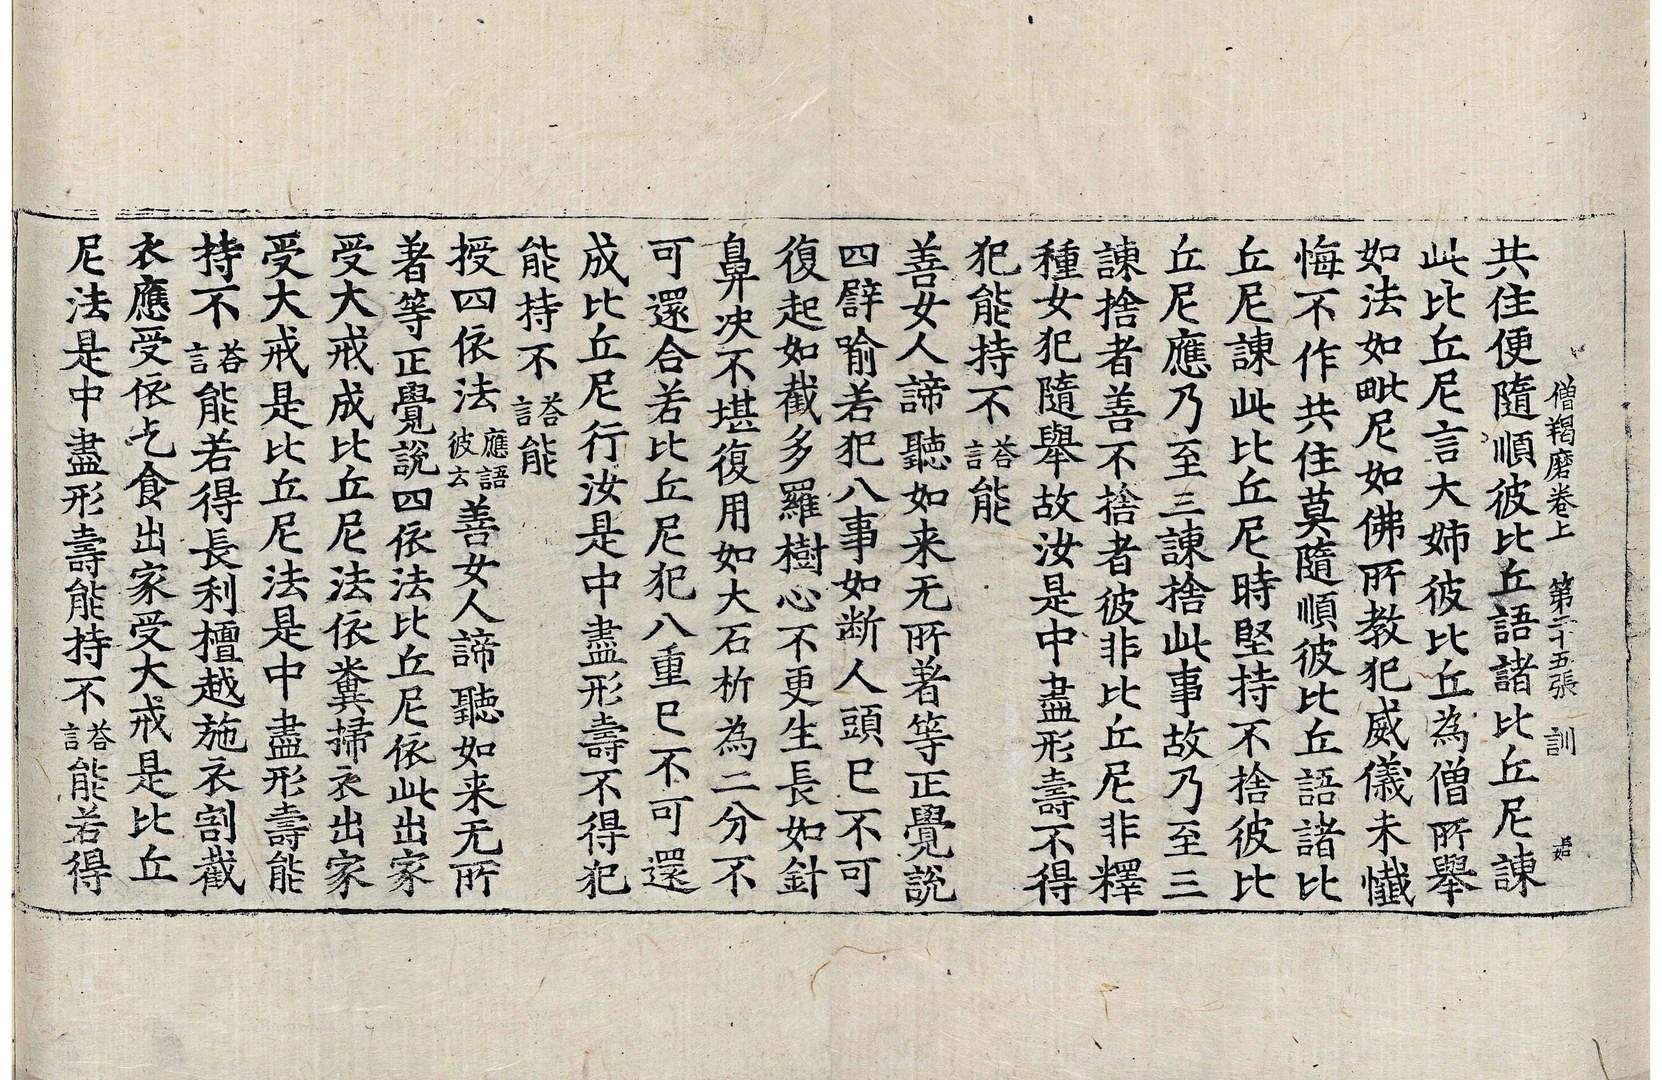 僧羯磨卷上 第二十五張 訓
共住便隨順彼比丘語諸比丘尼諫
此比丘尼言大姉彼比丘為僧所舉
如法如毗尼如佛所教犯威儀未懺
悔不作共住莫隨順彼比丘語諸比
丘尼諫此比丘尼時堅持不捨彼比
丘尼應乃至三諫捨此事故乃至三
諫捨者善不捨者彼非比丘尼非釋
種女犯隨舉故汝是中盡形壽不得
犯能持不答言能
善女人諦聽如来无所著等正覺說
四譬喻若犯八事如断人頭已不可
復起如截多羅樹心不更生長如針
鼻决不堪復用如大石析為二分不
可還合若比丘尼犯八重已不可還
成比丘尼行汝是中盡形壽不得犯
能持不答言能
授四依法應語彼云善女人諦聽如来无所
著等正覺說四依法比丘尼依此出家
受大戒成比丘尼法依糞掃衣出家
受大戒是比丘尼法是中盡形壽能
持不答言能若得長利檀越施衣割截
衣應受依乞食出家受大戒是比丘
尼法是中盡形壽能持不答言能若得